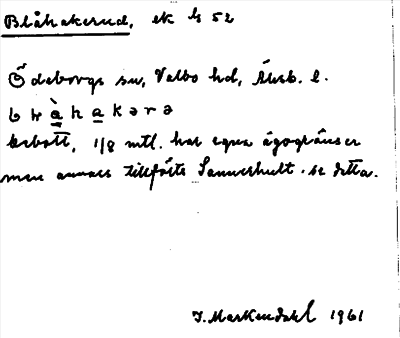 Blåhakerud, ek bl 52
Ödeborgs sn, Valbo hd, Älvsb. l.
b h à h a k ə r ə
bebott, 1/8 mtl. har egna ägogränser
men annars tillförts Sannerhult. se detta.
J. Markendahl 1961